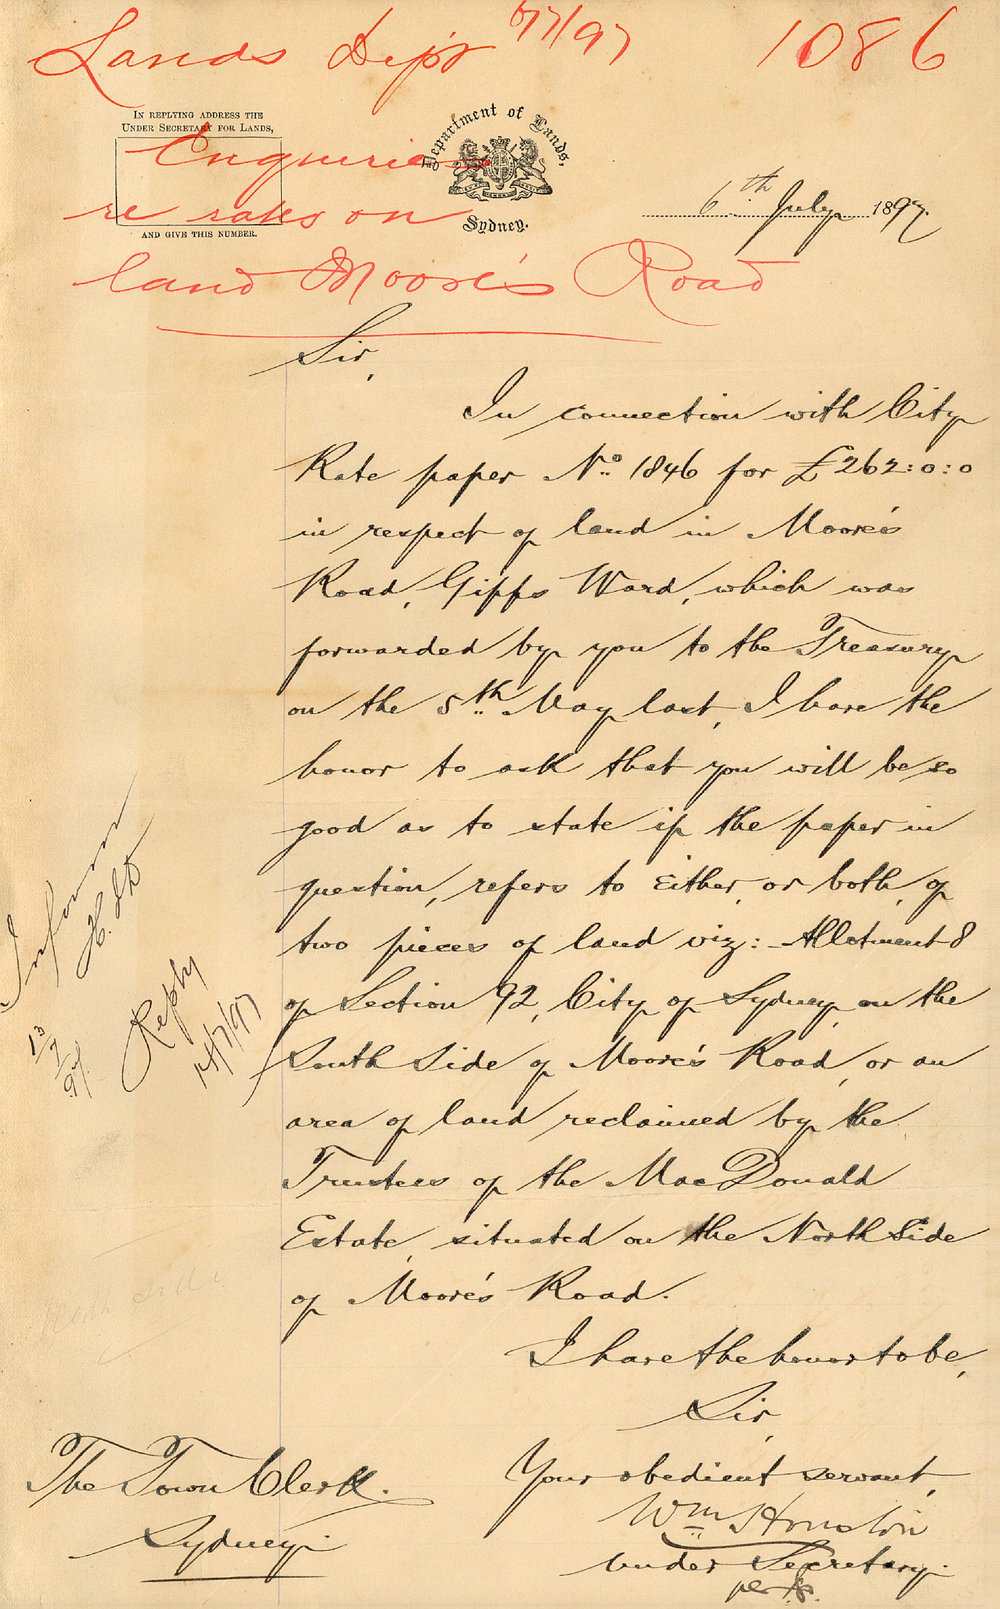 Lands Dept 6/7/97 1086
IN REPLYING ADDRESS THE
UNDER SECRETARY FOR LANDS,
AND GIVE THIS NUMBER.
Department of Lands,
Sydney.
Enquiries
re rates on
land Moore's Road
6th July 1897.
Sir,
In connection with City
Rate paper No. 1846 for £262:0:0
in respect of land in Moore's
Road, Gipps Ward, which was
forwarded by you to the Treasury
on the 5th May last, I have the
honor to ask that you will be so
good as to state if the paper in
question, refers to either, or both, of
two pieces of land viz: Allotment 8
of Section 92, City of Sydney, on the
South Side of Moore's Road, or an
area of land reclaimed by the
Trustees of the MacDonald
Estate, situated on the North Side
of Moore's Road.
I have the honor to be,
Sir,
Your obedient servant,
Wm Houston
Under Secretary.
per
The Town Clerk.
Sydney.
Inform
13/7/97.
Reply
14/7/97